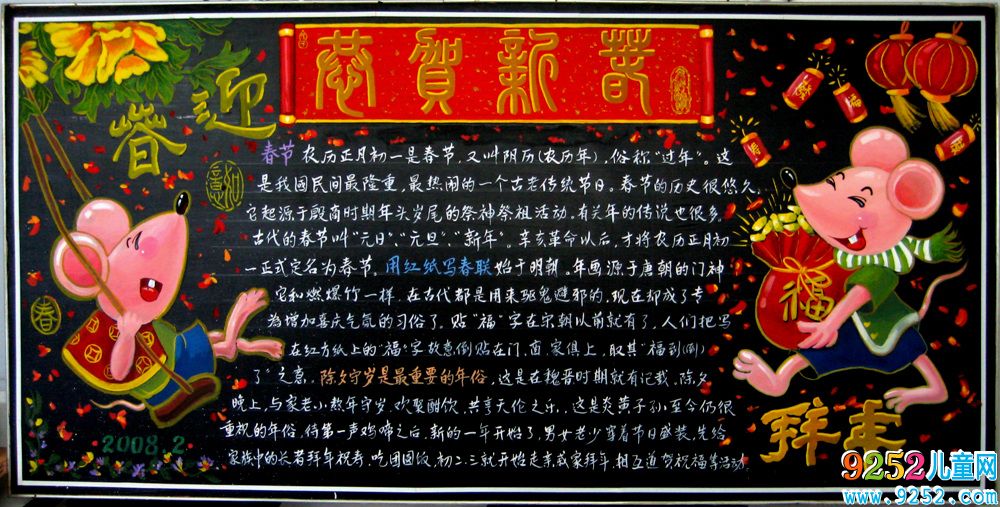 恭贺新春
迎春
春节 农历正月初一是春节，又叫阴历(农历年)，俗称“过年”。这
是我国民间最隆重，最热闹的一个古老传统节日。春节的历史很悠久，
它起源于殷商时期年头岁尾的祭神祭祖活动。有关年的传说也很多，
古代的春节叫“元日”“元旦”、“新年”。辛亥革命以后，才将农历正月初
一正式定名为春节。用红纸写春联始于明朝。年画源于唐朝的门神，
它和燃爆竹一样，在古代都是用来驱鬼避邪的，现在却成了专
为增加喜庆气氛的习俗了，贴“福”字在宋朝以前就有了，人们把写
在红方纸上的“福”字故意倒贴在门、面、家俱上，取其“福到(倒)
了”之意，除夕守岁是最重要的年俗，这是在魏晋时期就有记载。除夕
晚上，与家老小熬年守岁，欢聚酣饮，共享天伦之乐，这是炎黄子孙至今仍很
重视的年俗，待第一声鸡啼之后，新的一年开始了，男女老少穿着节日盛装，先给
家族中的长者拜年祝寿，吃团圆饭，初二、三就开始走亲戚家拜年，相互道贺祝福等活动。
春
福
拜年
2008.2
9252儿童网
www.9252.com